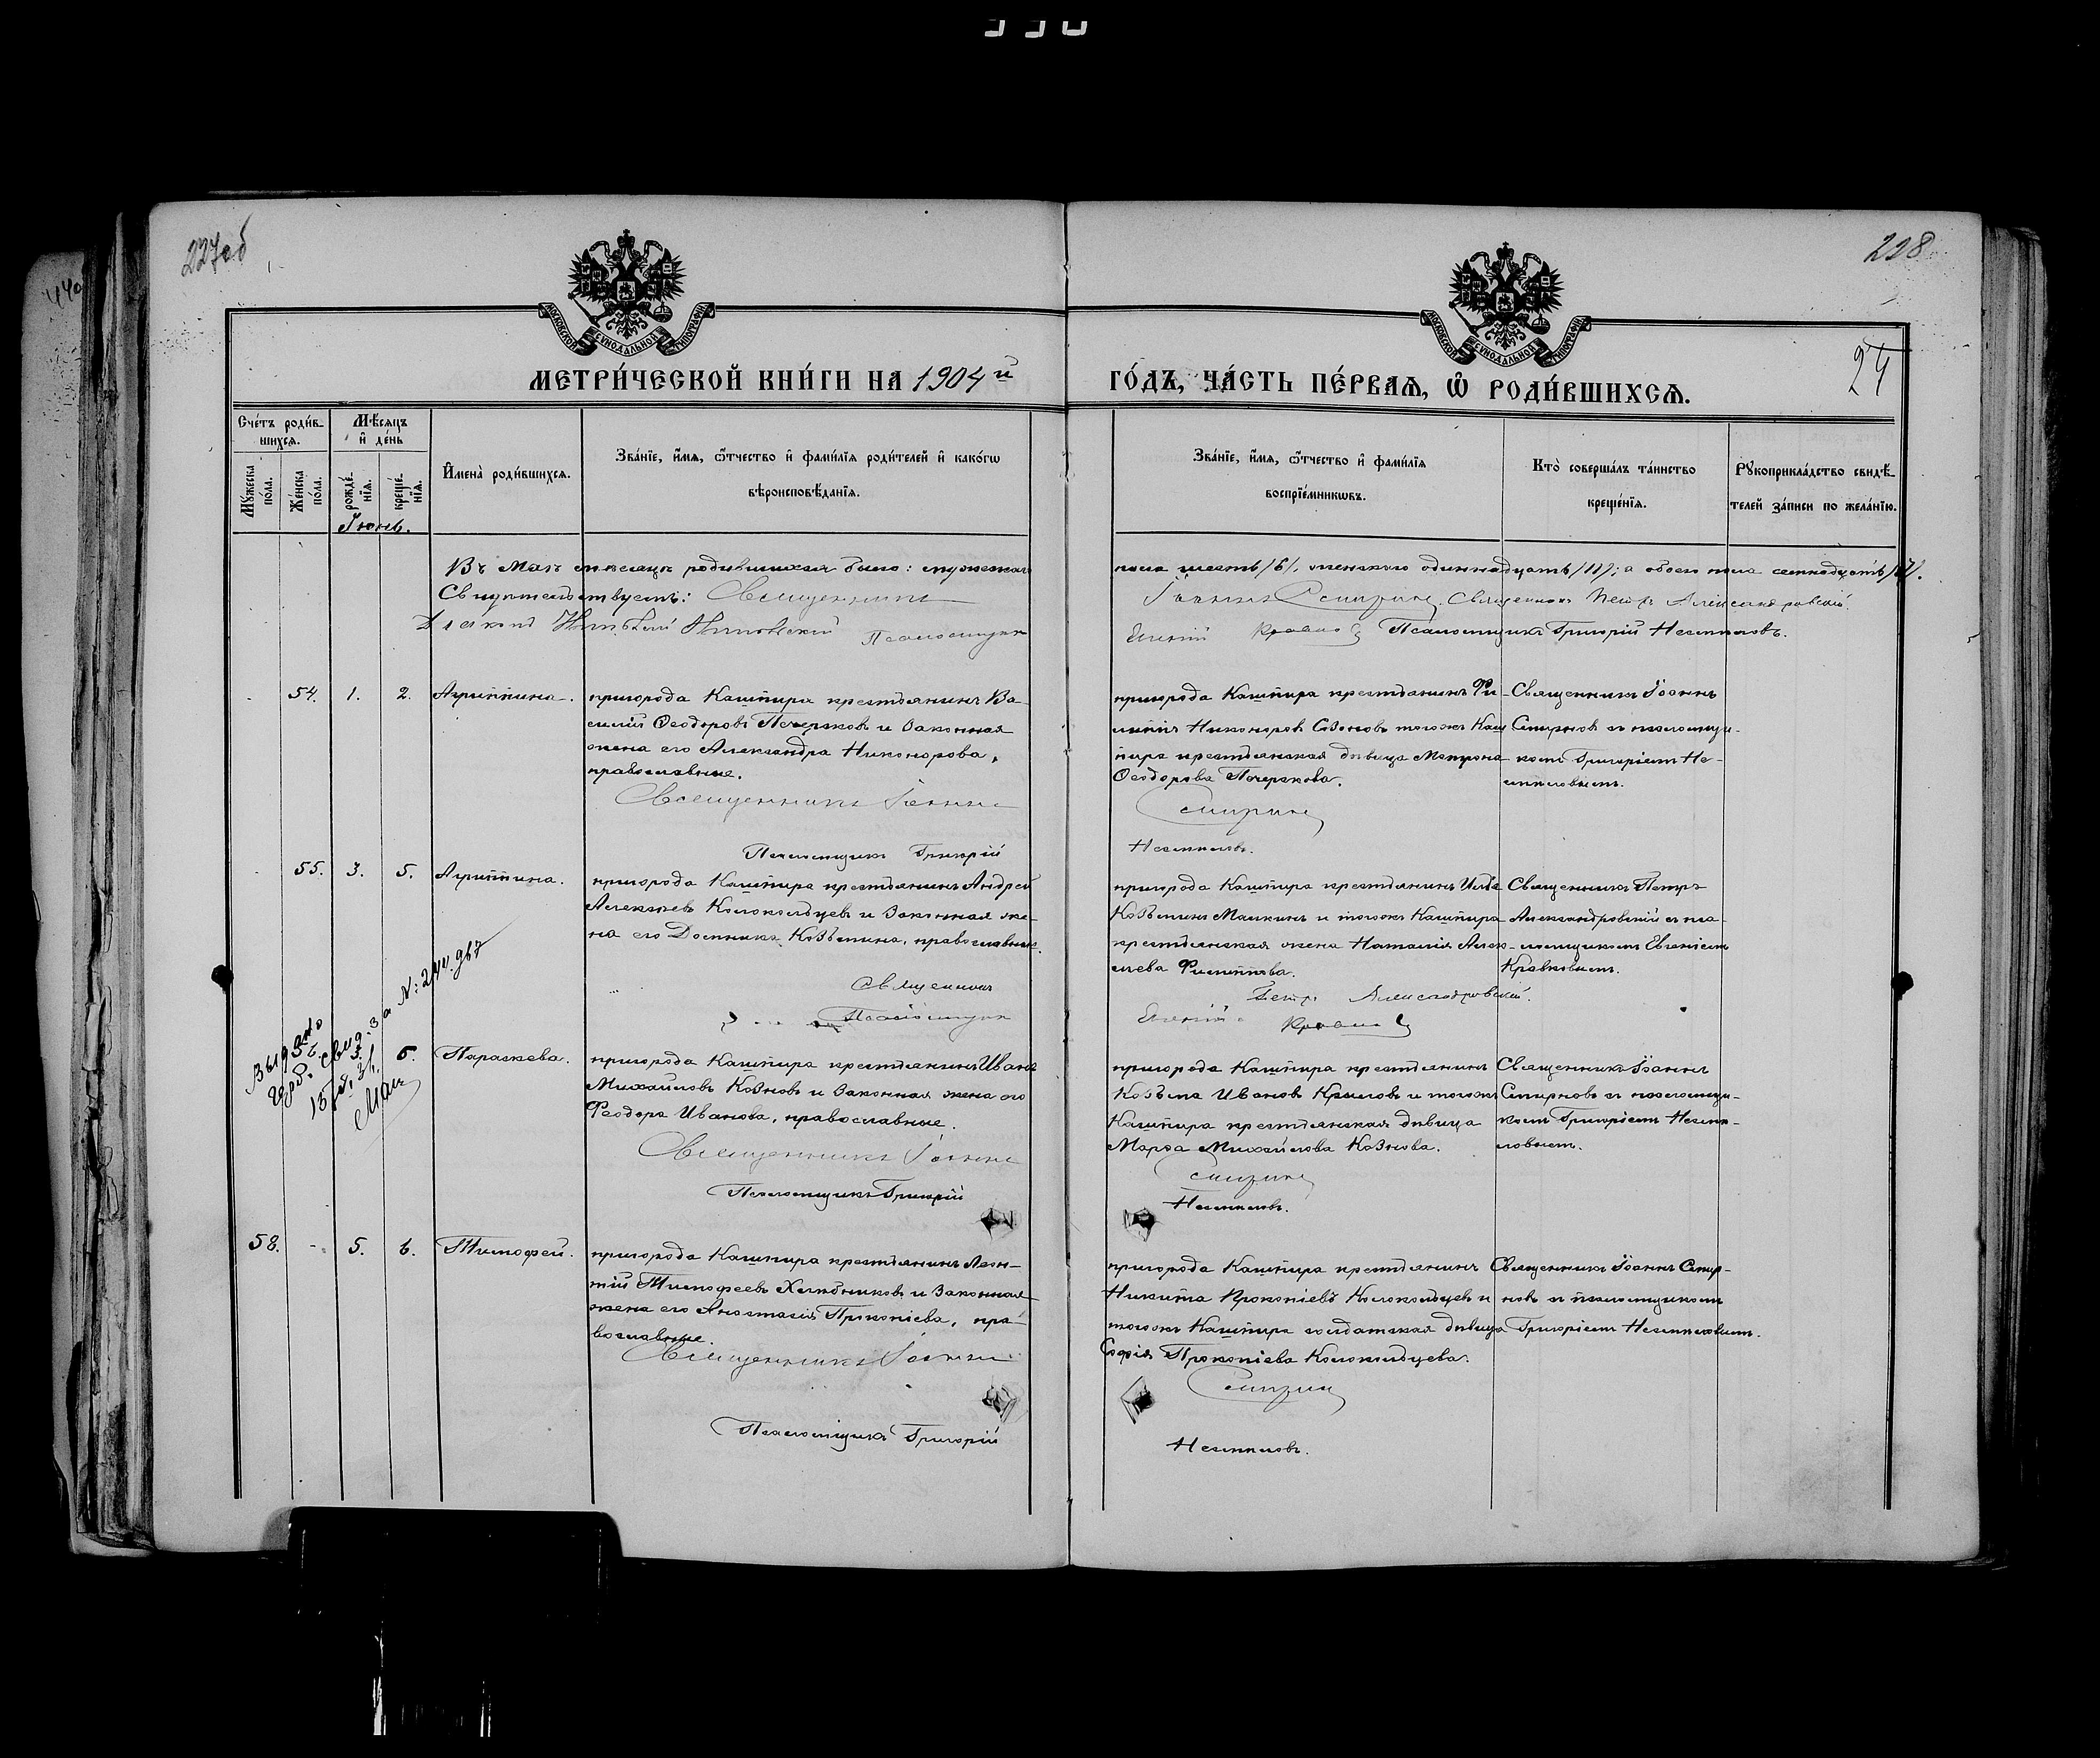 227об
228
24
МОСКОВСКОЙ СѴНОДАЛЬНОЙ ТИПОГРАФІИ
МОСКОВСКОЙ СѴНОДАЛЬНОЙ ТИПОГРАФІИ
МЕТРИ́ЧЕСКОЙ КНИ́ГИ НА 1904й
ГО́ДЪ, ЧА́СТЬ ПЕ́РВАѦ, Ѡ҆ РОДИ́ВШИХСѦ.
Сче́тъ роди́в-
шихсѧ.
Мꙋ́жеска по́ла.
Же́нска по́ла.
Мѣ́сѧцъ
и҆ де́нь
рожде́-
нїѧ.
креще́-
нїѧ.
Іюнь.
И҆мена̀ роди́вшихсѧ.
Зва́нїе, и҆́мѧ, ѻ҆́тчество и҆ фами́лїѧ роди́телей и҆ како́гѡ
вѣроисповѣ́данїѧ.
Зва́нїе, и҆́мѧ, ѻ҆́тчество и҆ фами́лїѧ
воспрїе́мникѡвъ.
Кто̀ соверша́лъ та́инство
креще́нїѧ.
Рꙋкоприкла́дство свидѣ́-
телей за́писи по жела́нїю.
Въ Маѣ мѣсяцѣ родившихся было: мужескаго
пола шесть /6/, женскаго одиннадцать /11/; а обоего пола семнадцать /17/.
Свидѣтельствуетъ: Священникъ
Іоаннъ Смирнов. Священникъ Петръ Александровскій.
Діаконъ
Псаломщикъ
Евгеній Кравков Псаломщикъ Григорій Несмѣловъ.
54. 1. 2. Агриппина.
пригорода Кашпира крестьянинъ Ва-
силій Ѳеодоровъ Печерков и законная
жена его Александра Никонорова,
православные.
Священникъ Іоаннъ
Псаломщикъ Григорій
пригорода Кашпира крестьянинъ Фи-
липпъ Никоноровъ Созоновъ тогожъ Каш
пира крестьянская дѣвица Матрона
Ѳеодорова Печеркова.
Смирнов
Несмѣловъ.
Священникъ Іоаннъ
Смирновъ съ псаломщи-
комъ Григоріемъ Не-
смѣловымъ.
55. 3. 5. Агриппина.
пригорода Кашпира крестьянинъ Андрей
Алексѣевъ Колокольцевъ и законная же-
на его Домника Козьмина, православные.
Священникъ
Псаломщикъ
пригорода Кашпира крестьянинъ Илья
Козьминъ Машкинъ и тогожъ Кашпира
крестьянская жена Наталія Алек-
сѣева Филиппова.
Петръ Александровскій.
Евгеній Кравков
Священникъ Петръ
Александровскій съ пса-
ломщикомъ Евгеніемъ
Кравковымъ.
Выдано
свид. за №:
56. 3. 5. Параскева.
пригорода Кашпира крестьянинъ Иванъ
Михайловъ Козновъ и законная жена его
Феодора Иванова, православные.
Священникъ Іоаннъ
Псаломщикъ Григорій
пригорода Кашпира крестьянинъ
Козьма Ивановъ Крыловъ и тогожъ
Кашпира крестьянская дѣвица
Марѳа Михайлова Кознова.
Смирнов
Несмѣловъ.
Священникъ Іоаннъ
Смирновъ съ псаломщи-
комъ Григоріемъ Несмѣ-
ловымъ.
58. - 5. 6. Тимофей.
пригорода Кашпира крестьянинъ Леон-
тій Тимофеевъ Хлѣбниковъ и законная
жена его Анастасія Прокопіева, пра-
вославные.
Священникъ Іоаннъ
Псаломщикъ Григорій
пригорода Кашпира крестьянинъ
Никита Прокопіевъ Колокольцевъ и
тогожъ Кашпира солдатская дѣвица
Софія Прокопіева Колокольцева.
Смирнов
Несмѣловъ.
Священникъ Іоаннъ Смир-
новъ съ псаломщикомъ
Григоріемъ Несмѣловымъ.